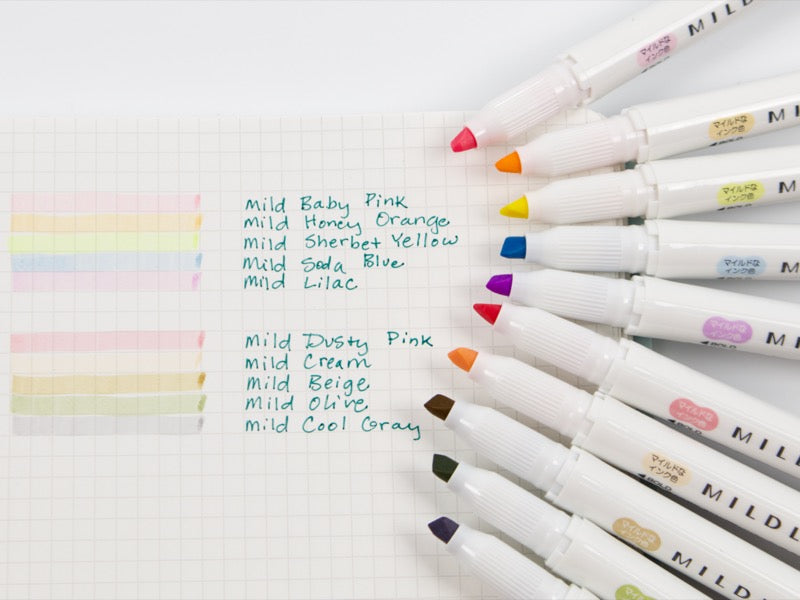 Mild Baby Pink
Mild Honey Orange
Mild Sherbet Yellow
Mild Soda Blue
Mild Lilac
Mild Dusty Pink
Mild Cream
Mild Beige
Mild Olive
Mild Cool Gray
マイルドな
インク色
MILD
マイルドな
インク色
BOLD
マイルドな
インク色
BOLD
マイルドな
インク色
マイルドな
インク色
BOLD
マイルドな
インク色
MILD
マイルドな
インク色
BOLD
MILDL
マイルドな
インク色
MILDL
マイルドな